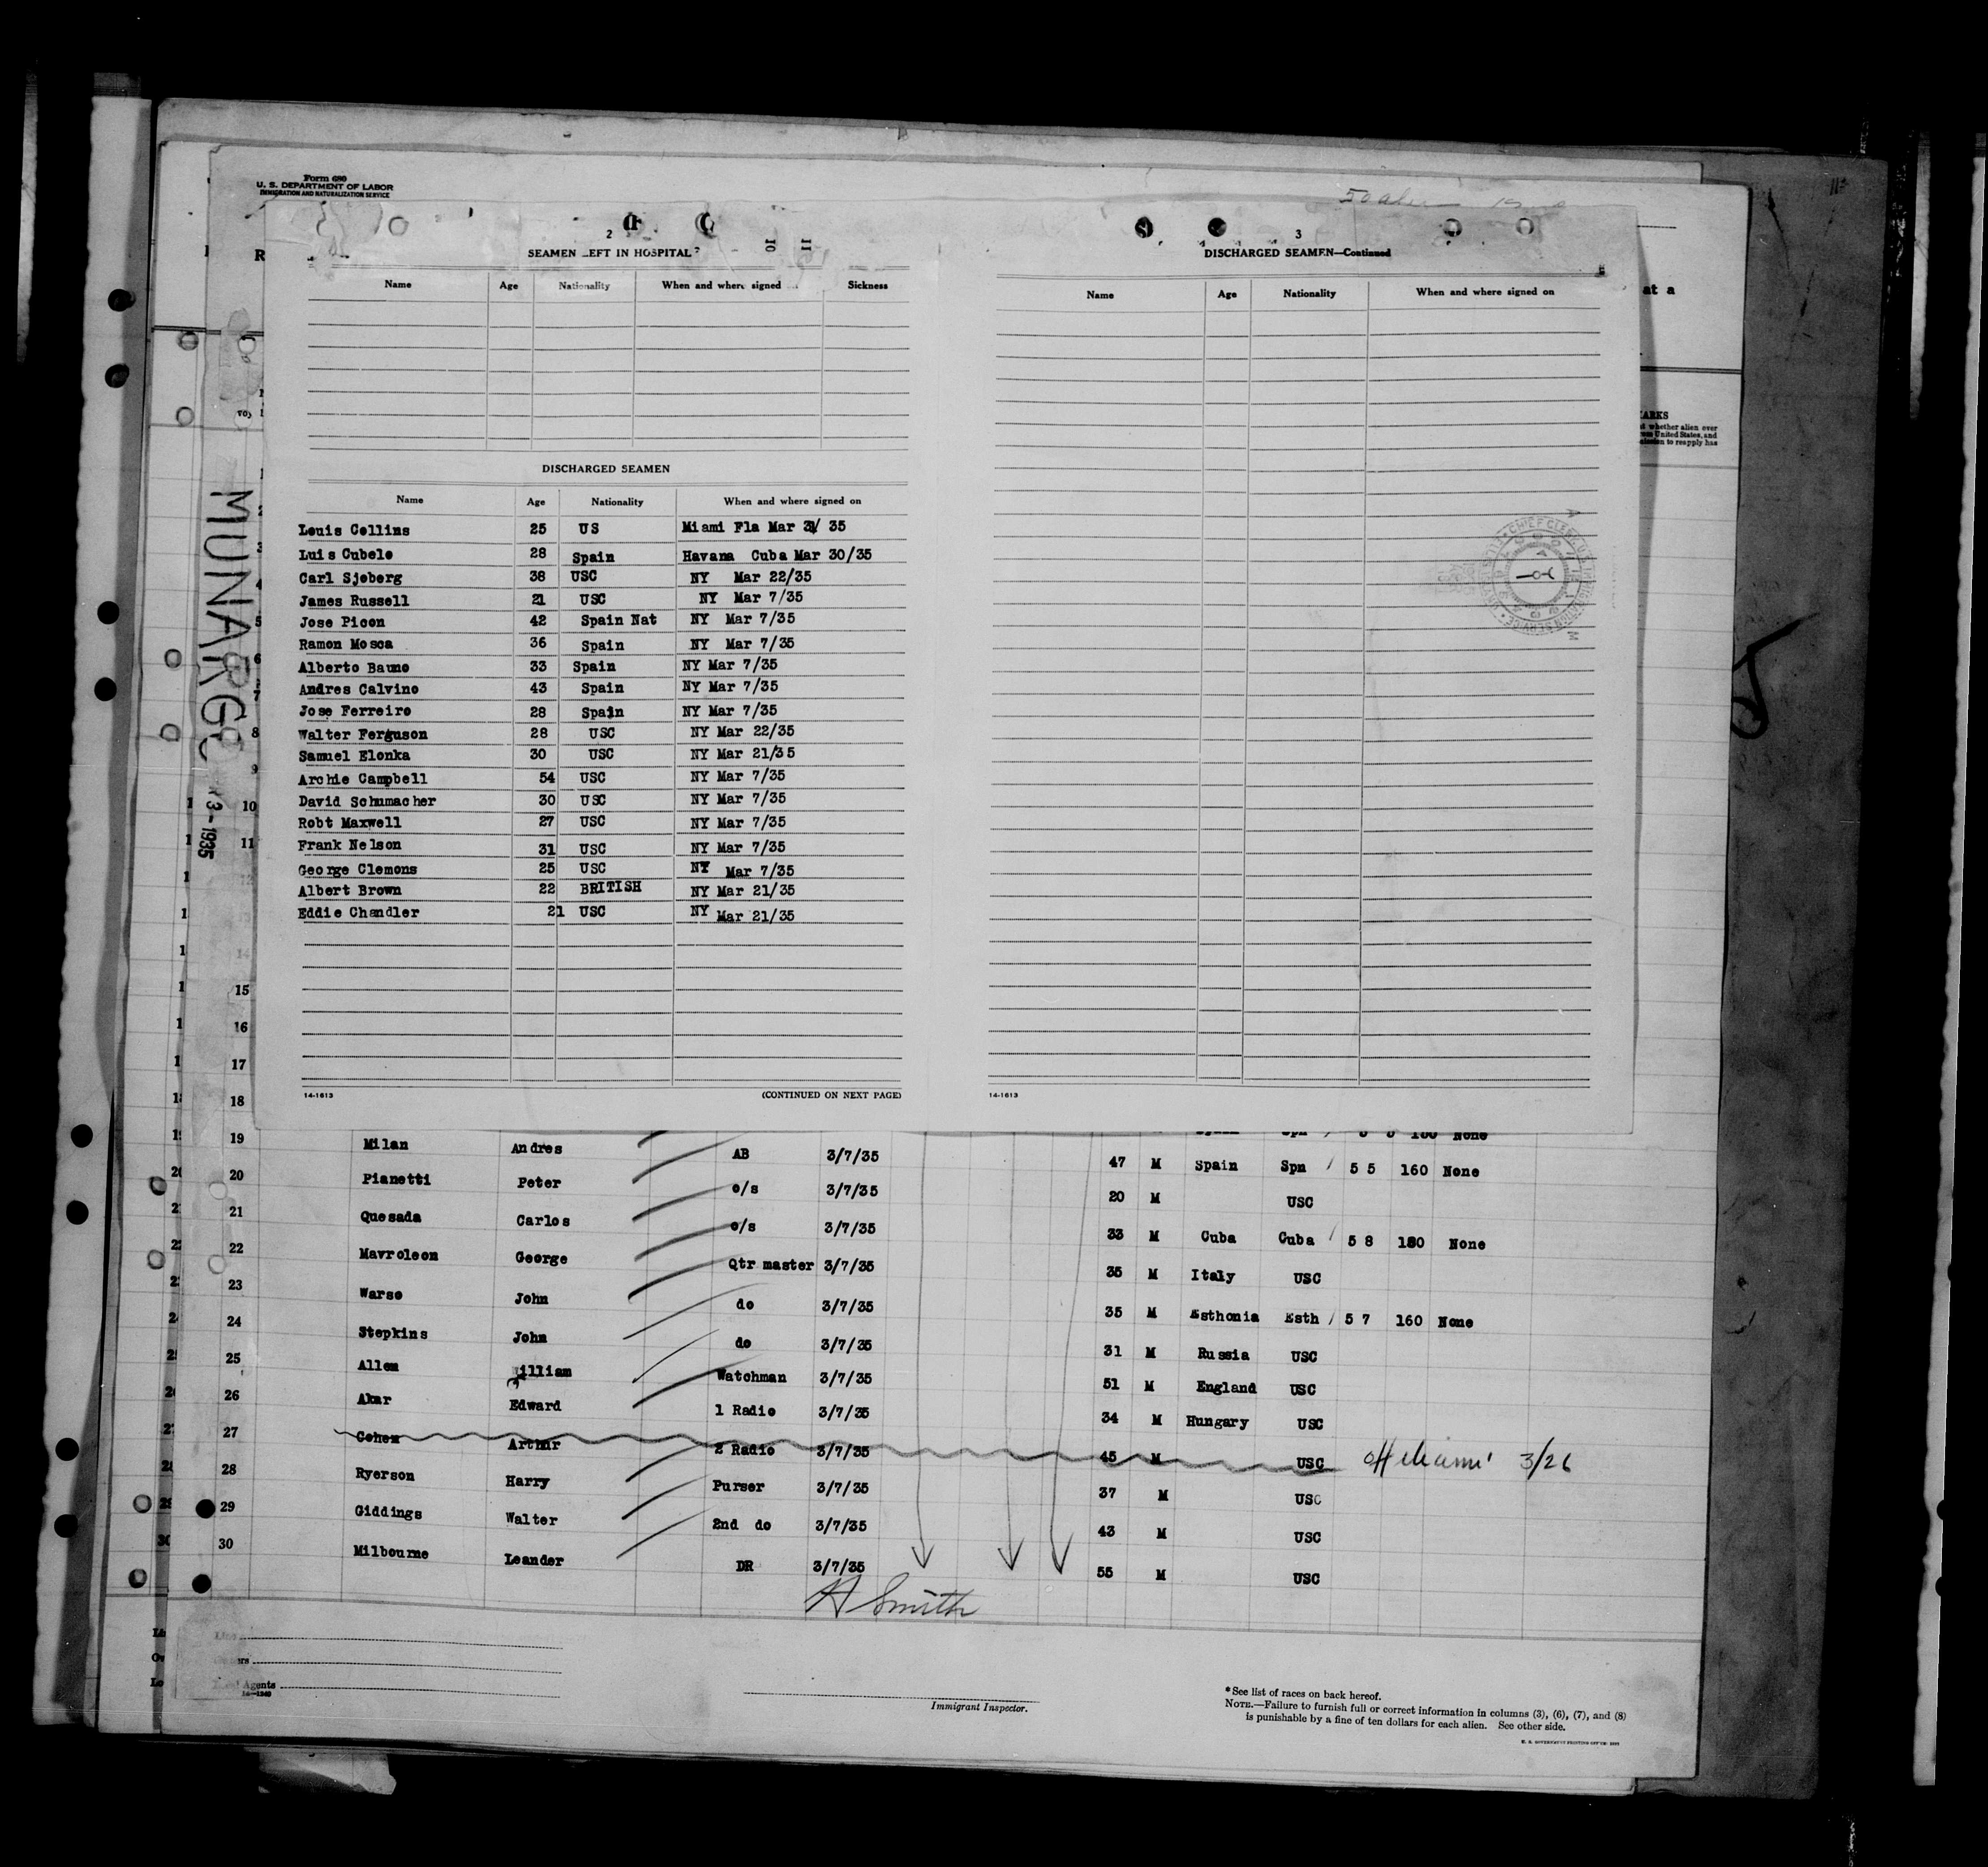 Form 680
U. S. DEPARTMENT OF LABOR
IMMIGRATION AND NATURALIZATION SERVICE
MUNARGO
3-1935
2
SEAMEN LEFT IN HOSPITAL
Name Age Nationality When and where signed Sickness
DISCHARGED SEAMEN
Name Age Nationality When and where signed on
Louis Collins 25 US Miami Fla Mar 35
Luis Cubelo 28 Spain Havana Cuba Mar 30/35
Carl Sjoberg 38 USC NY Mar 22/35
James Russell 21 USC NY Mar 7/35
Jose Picon 42 Spain Nat NY Mar 7/35
Ramon Mosca 36 Spain NY Mar 7/35
Alberto Baumo 33 Spain NY Mar 7/35
Andres Calvino 43 Spain NY Mar 7/35
Jose Ferreiro 28 Spain NY Mar 7/35
Walter Ferguson 28 USC NY Mar 22/35
Samuel Elonka 30 USC NY Mar 21/35
Archie Campbell 54 USC NY Mar 7/35
David Schumacher 30 USC NY Mar 7/35
Robt Maxwell 27 USC NY Mar 7/35
Frank Nelson 31 USC NY Mar 7/35
George Clemons 25 USC NY Mar 7/35
Albert Brown 22 BRITISH NY Mar 21/35
Eddie Chandler 21 USC NY Mar 21/35
14-1613 (CONTINUED ON NEXT PAGE)
3
DISCHARGED SEAMEN—Continued
Name Age Nationality When and where signed on
14-1613
at a
whether alien ever
from United States, and
to reapply has
19 Milan Andres AB 3/7/35 47 M Spain Spn 5 5 160 None
20 Pianetti Peter o/s 3/7/35 20 M USC
21 Quesada Carlos o/s 3/7/35 33 M Cuba Cuba 5 8 180 None
22 Mavroleon George Qtr master 3/7/35 35 M Italy USC
23 Warso John do 3/7/35 35 M Esthonia Esth 5 7 160 None
24 Stepkins John do 3/7/35 31 M Russia USC
25 Allen William Watchman 3/7/35 51 M England USC
26 Akar Edward 1 Radio 3/7/35 34 M Hungary USC
27 Cohen Arthur 2 Radio 3/7/35 45 M USC off Miami 3/26
28 Ryerson Harry Purser 3/7/35 37 M USC
29 Giddings Walter 2nd do 3/7/35 43 M USC
30 Milbourne Leander DR 3/7/35 55 M USC
H Smith
Line
Agents
14-1240
Immigrant Inspector.
*See list of races on back hereof.
NOTE.—Failure to furnish full or correct information in columns (3), (6), (7), and (8)
is punishable by a fine of ten dollars for each alien. See other side.